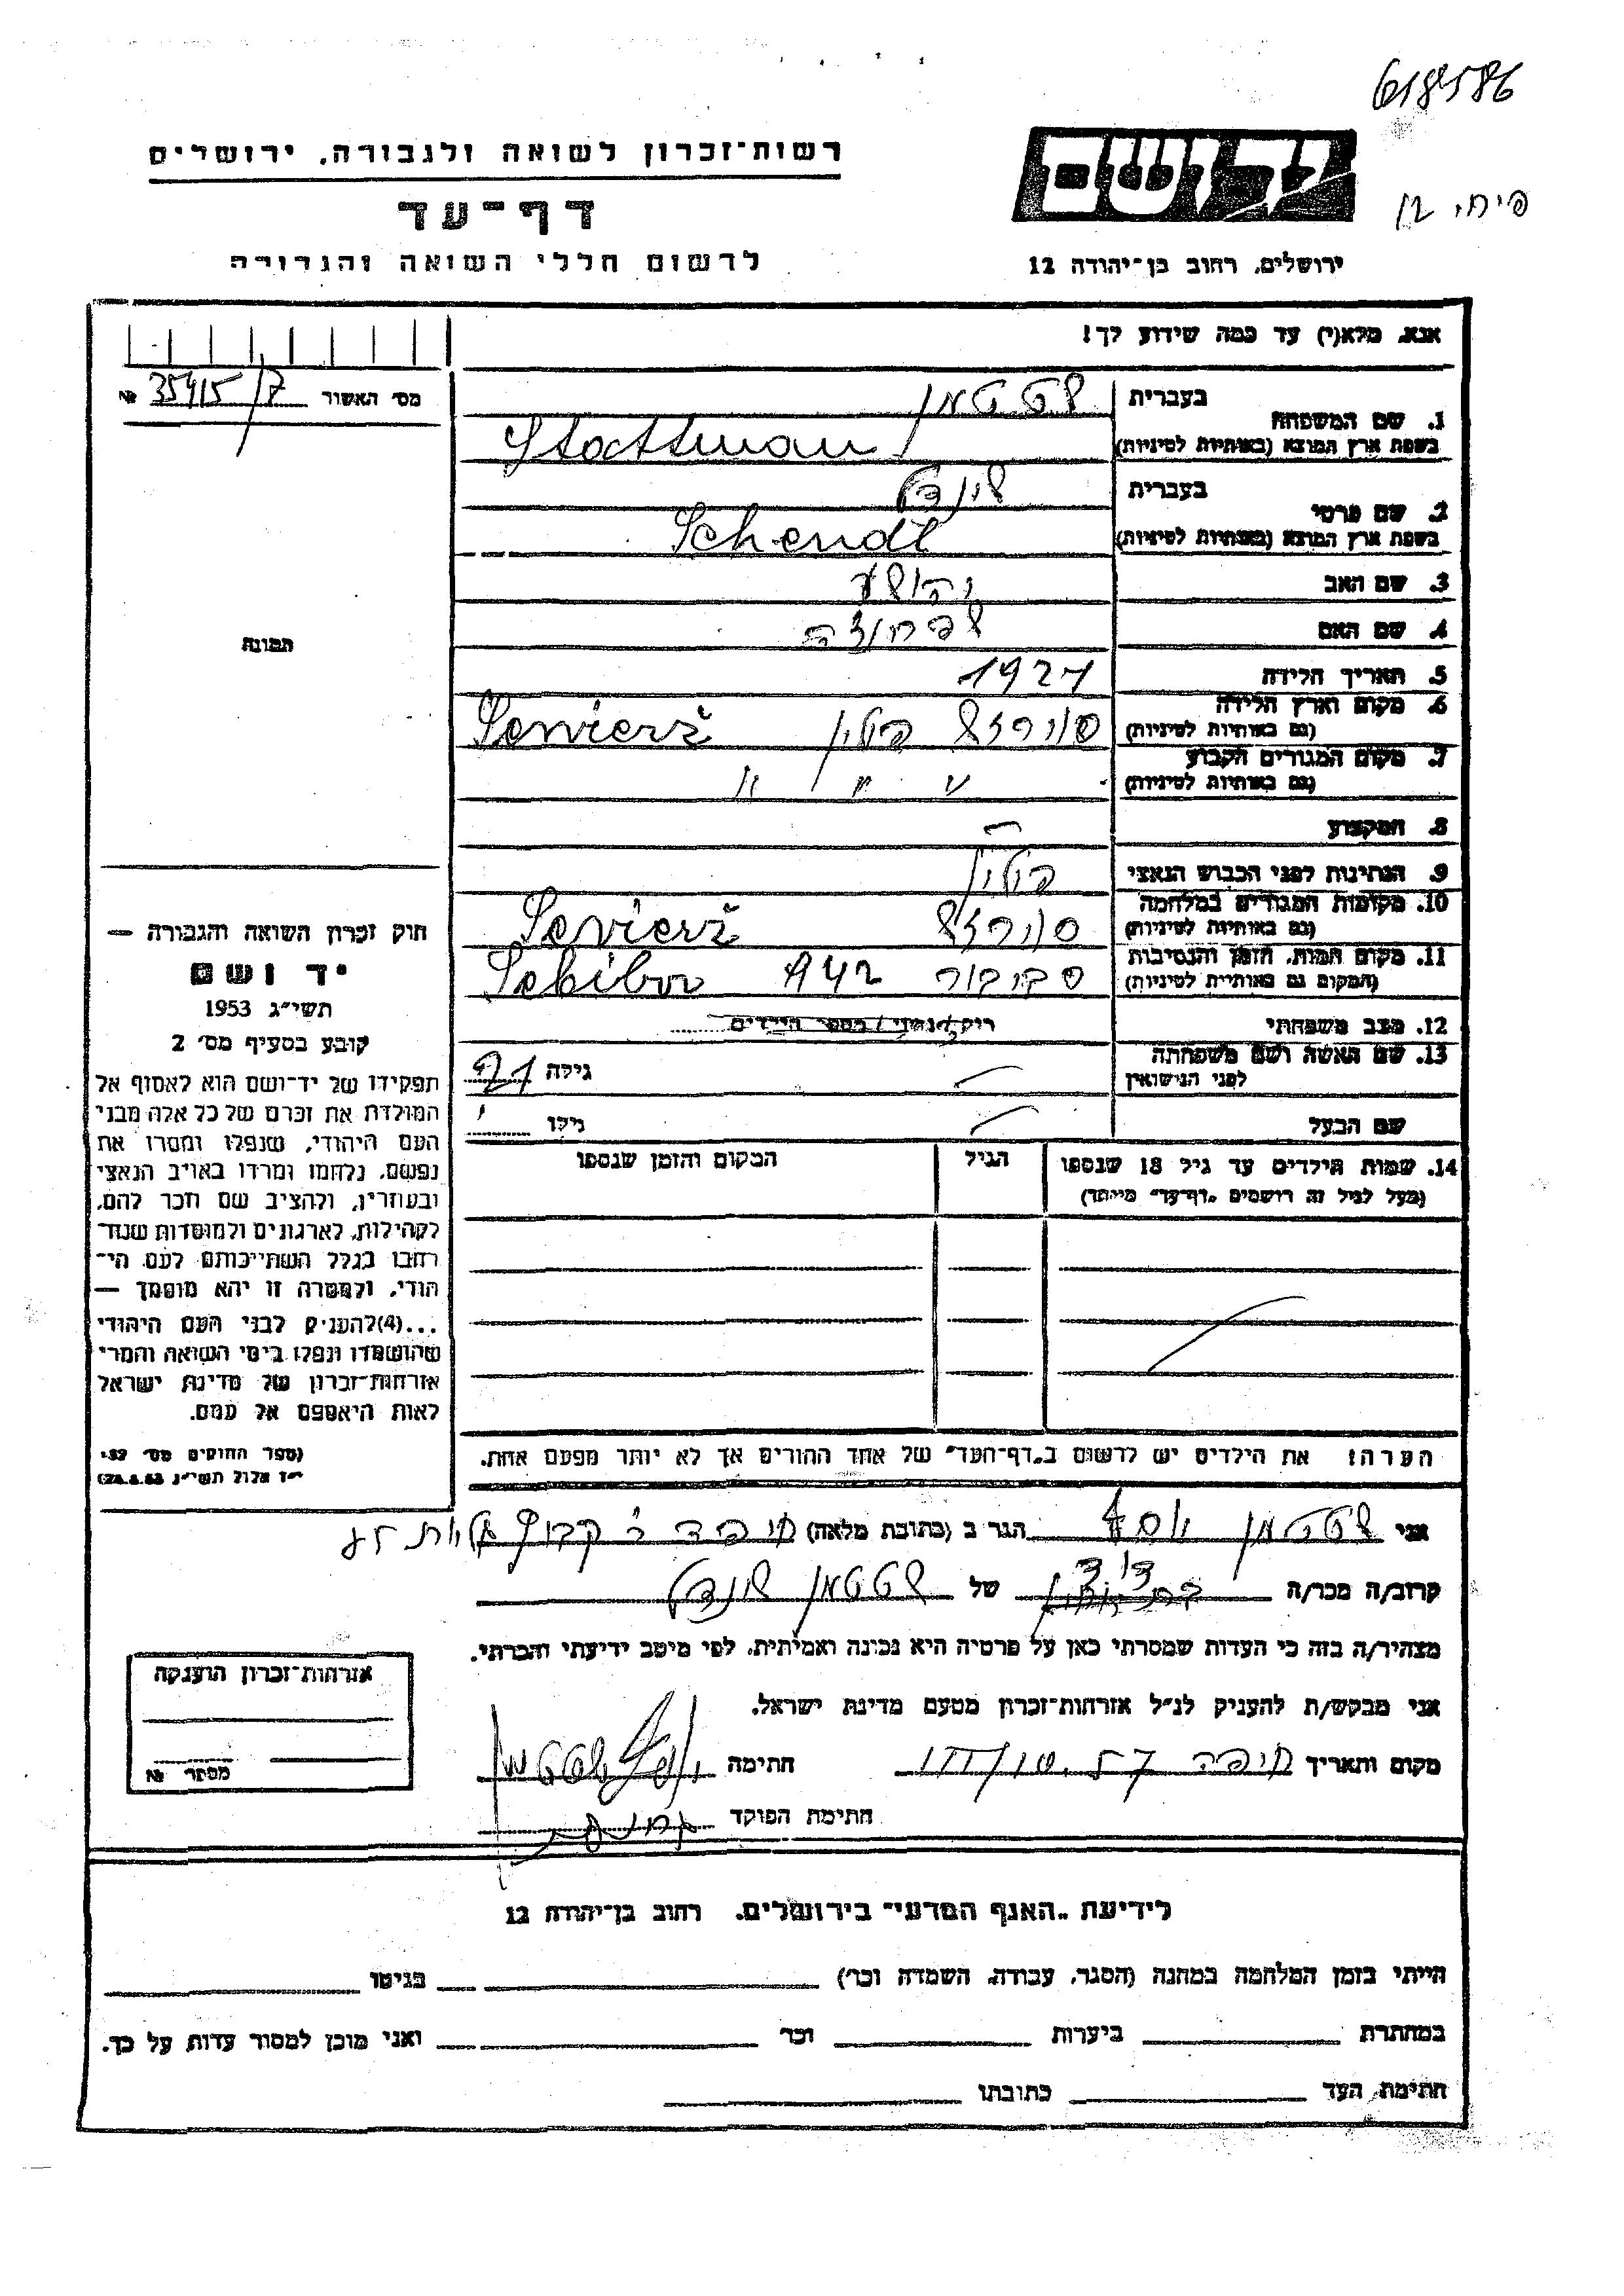 618586
רשות־זכרון לשואה ולגבורה, ירושלים
יד ושם
דף־עד
לרשום חללי השואה והגבורה
ירושלים, רחוב בן־יהודה 12
אנא, מלא(י) עד כמה שידוע לך!
מס׳ האשור 35415/7 №
1. שם המשפחה בעברית שטטמן
בשפת ארץ המוצא (באותיות לטיניות) Stattman
2. שם פרטי בעברית שינדל
בשפת ארץ המוצא (באותיות לטיניות) Schendl
3. שם האב יהושע
4. שם האם
תמונה
5. תאריך הלידה 1921
6. מקום וארץ הלידה (גם באותיות לטיניות) פולין Sevierž
7. מקום המגורים הקבוע (גם באותיות לטיניות) " " "
8. המקצוע —
9. הנתינות לפני הכבוש הנאצי פולין
10. מקומות המגורים במלחמה (גם באותיות לטיניות) Sevierž
11. מקום המות, הזמן והנסיבות (המקום גם באותיות לטיניות) סביבור 942 Sobibor
12. מצב משפחתי רוק/ נשוי/ מספר הילדים
13. שם האשה ושם משפחתה לפני הנישואין גילה 21
שם הבעל גילו
14. שמות הילדים עד גיל 18 שנספו
(מעל לגיל זה רושמים „דף־עד״ מיוחד)
הגיל
המקום והזמן שנספו
הערה: את הילדים יש לרשום ב„דף־העד״ של אחד ההורים אך לא יותר מפעם אחת.
חוק זכרון השואה והגבורה —
יד ושם
תשי״ג 1953
קובע בסעיף מס׳ 2
תפקידו של יד־ושם הוא לאסוף אל
המולדת את זכרם של כל אלה מבני
העם היהודי, שנפלו ומסרו את
נפשם, נלחמו ומרדו באויב הנאצי
ובעוזריו, ולהציב שם וזכר להם,
לקהילות, לארגונים ולמוסדות שנח־
רבו בגלל השתייכותם לעם הי־
הודי, ולמטרה זו יהא מוסמך —
...(4)להעניק לבני העם היהודי
שהושמדו ונפלו בימי השואה והמרי
אזרחות־זכרון של מדינת ישראל
לאות היאספם אל עמם.
(ספר החוקים מס׳ 132
י״ז אלול תשי״ג 28.8.53)
אני שטטמן יוסף הגר ב (כתובת מלאה) חיפה
קרוב/ה מכר/ה דוד של שטטמן שינדל
מצהיר/ה בזה כי העדות שמסרתי כאן על פרטיה היא נכונה ואמיתית, לפי מיטב ידיעתי והכרתי.
אני מבקש/ת להעניק לנ״ל אזרחות־זכרון מטעם מדינת ישראל.
מקום ותאריך חיפה חתימה
חתימת הפוקד
אזרחות־זכרון הוענקה
מספר №
לידיעת „האגף המדעי״ בירושלים, רחוב בן־יהודה 12
הייתי בזמן המלחמה במחנה (הסגר, עבודה, השמדה וכו׳) בגיטו
במחתרת ביערות וכו׳ ואני מוכן למסור עדות על כך.
חתימת העד כתובתו